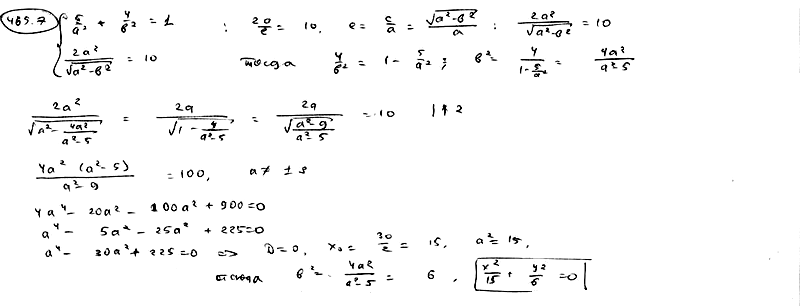 465.7 { 5/a² + 4/b² = 1 ; 2a/e = 10, e = c/a = √(a²-b²)/a ; 2a²/√(a²-b²) = 10
2a²/√(a²-b²) = 10 тогда 4/b² = 1 - 5/a² ; b² = 4/(1-5/a²) = 4a²/(a²-5)
2a²/√(a² - 4a²/(a²-5)) = 2a/√(1 - 4/(a²-5)) = 2a/√((a²-9)/(a²-5)) = 10 |↑2
4a² (a²-5)/(a²-9) = 100, a ≠ ±3
4a⁴ - 20a² - 100a² + 900=0
a⁴ - 5a² - 25a² + 225=0
a⁴ - 30a² + 225=0 => D=0, x₀ = 30/2 = 15, a² = 15,
тогда b² = 4a²/(a²-5) = 6, x²/15 + y²/6 =0